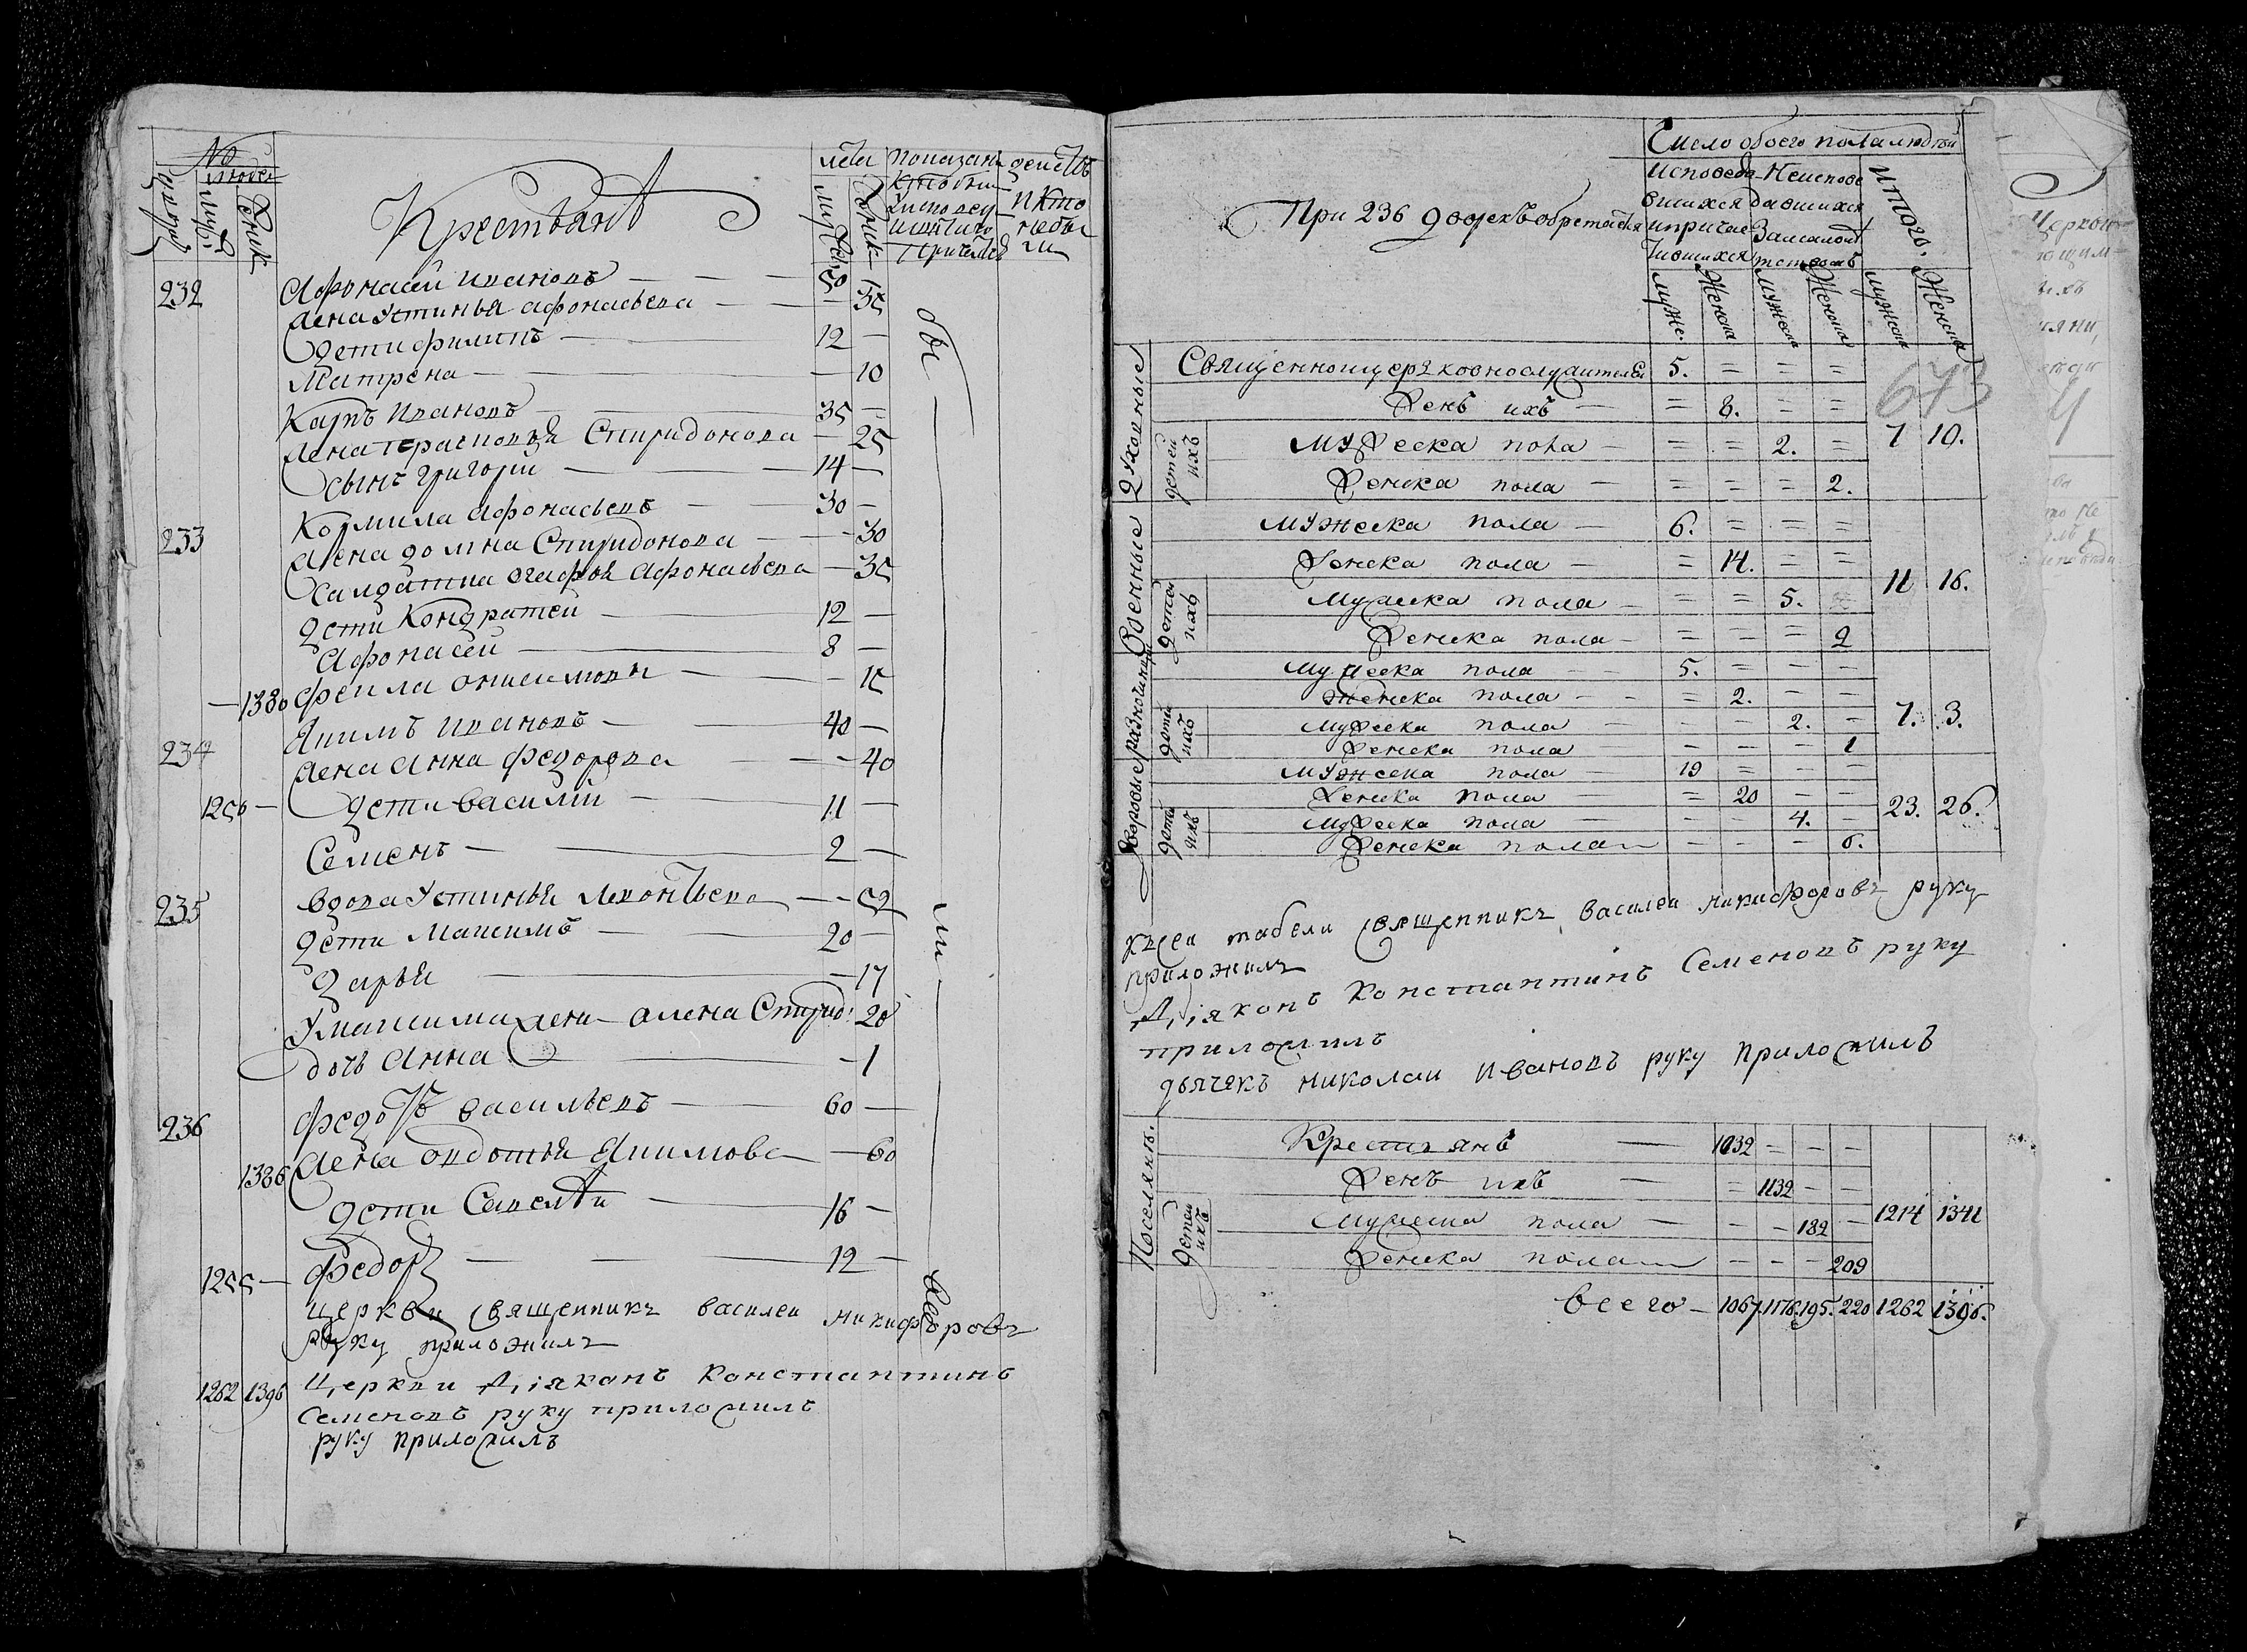 №
людей
двороѡ
мужс
женск
Крестьянъ
лета
мужеск
женск
показани
кто был
у исповед
и святаго
причастия
действъ
и кто
не бы
ли
232 Афонасеи Ивановъ — 50 —
Жена Устинья Афонасьева — 35
Дети Филипъ — 12 —
Матрена — 10
Карпъ Ивановъ — 35 —
Жена Спиридонова — 25
Сынъ Григореи — 14 —
233 Афонасьевъ — 30 —
Жена Домна Спиридонова — 30
Салдатка Огафья Афонасьева — 35
Дети Кондратеи — 12 —
Афонасеи — 8 —
— 1380 Онисимова — 15
234 Якимъ Ивановъ — 40 —
Жена Анна Федорова — 40
1250 — Дети Василии — 11 —
Семенъ — 2 —
235 Вдова Устинья Леонтьева — 52
Дети Максимъ — 20 —
Дарья — 17
У Максима жена Алена Спирид: 20
дочь Анна — 1
236 Федотъ Васильевъ — 60 —
1386 Жена Овдотья Якимова — 60
Дети Савелеи — 16 —
1255 — Федоръ — 12 —
бы
ли
церкви священникъ василеи никифоровъ
руку приложилъ
1262 1396 Церкви Діяконъ Константинъ
Семеновъ руку приложилъ
руку приложилъ
При 236 дворехъ обретается
Число обоего пола людеи
Исповеда
вшихся
и причас
тившихся
Неисповедавшихся
За малолетством
Итого.
мужес.
Женска
мужеска
Женска
мужеска
Женска
673
Духовные
Священноицерковнослужителеи 5. = = =
Женъ ихъ — = 8. = =
детеи ихъ
Мужеска пола — = = 2. = 7 10.
Женска пола — = = = 2.
Военные
Мужеска пола — 6. = = =
Женска пола — = 14. = =
детеи ихъ
Мужеска пола — = = 5. = 11 16.
Женска пола — = = = 2
разночинцы
Мужеска пола — 5. = — —
Женска пола — = 2. — —
детеи ихъ
Мужеска пола — — — 2. — 7. 3.
Женска пола — — — 1
Дворовые
Мужеска пола — 19 = — —
Женска пола — = 20 — —
детеи ихъ
Мужеска пола — — — 4. — 23. 26.
Женска пола — — — — 6.
къ сеи табели священникъ василеи никифоровъ руку
приложилъ
Діяконъ Константинъ Семеновъ руку
приложилъ
дьячекъ николаи Ивановъ руку приложилъ
Поселянъ.
Крестьянъ — 1032 — — —
Женъ ихъ — = 1132 — —
детеи ихъ
Мужеска пола — — — 182 — 1214 1341
Женска пола — — — — 209
Всего — 1067. 1176. 195. 220 1262 1396.